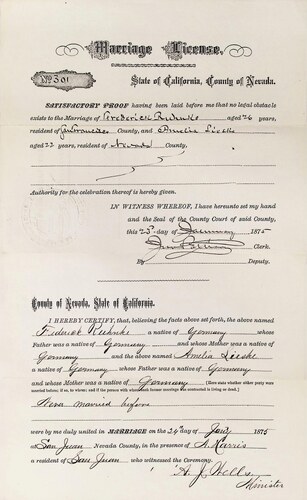 Marriage License.
No. 301
State of California, County of Nevada.
SATISFACTORY PROOF having been laid before me that no legal obstacle
exists to the Marriage of Frederick aged 26 years,
resident of San Francisco County, and Amelia
aged 22 years, resident of Nevada County.
Authority for the celebration thereof is hereby given.
IN WITNESS WHEREOF, I have hereunto set my hand
and the Seal of the County Court of said County,
this 25th day of January 1875
Clerk.
By Deputy.
County of Nevada, State of California.
I HEREBY CERTIFY, that, believing the facts above set forth, the above named
a native of Germany whose
Father was a native of Germany and whose Mother was a native of
Germany and the above named Amelia
a native of Germany whose Father was a native of Germany
and whose Mother was a native of Germany (Here state whether either party were
married before; if so, to whom; and if the person with whom such former marriage was contracted is living or dead.)
married before
were by me duly united in MARRIAGE on the 26 day of Jany 1875
at San Juan Nevada County, in the presence of
a resident of San Juan who witnessed the Ceremony.
A. J. Wells
Minister